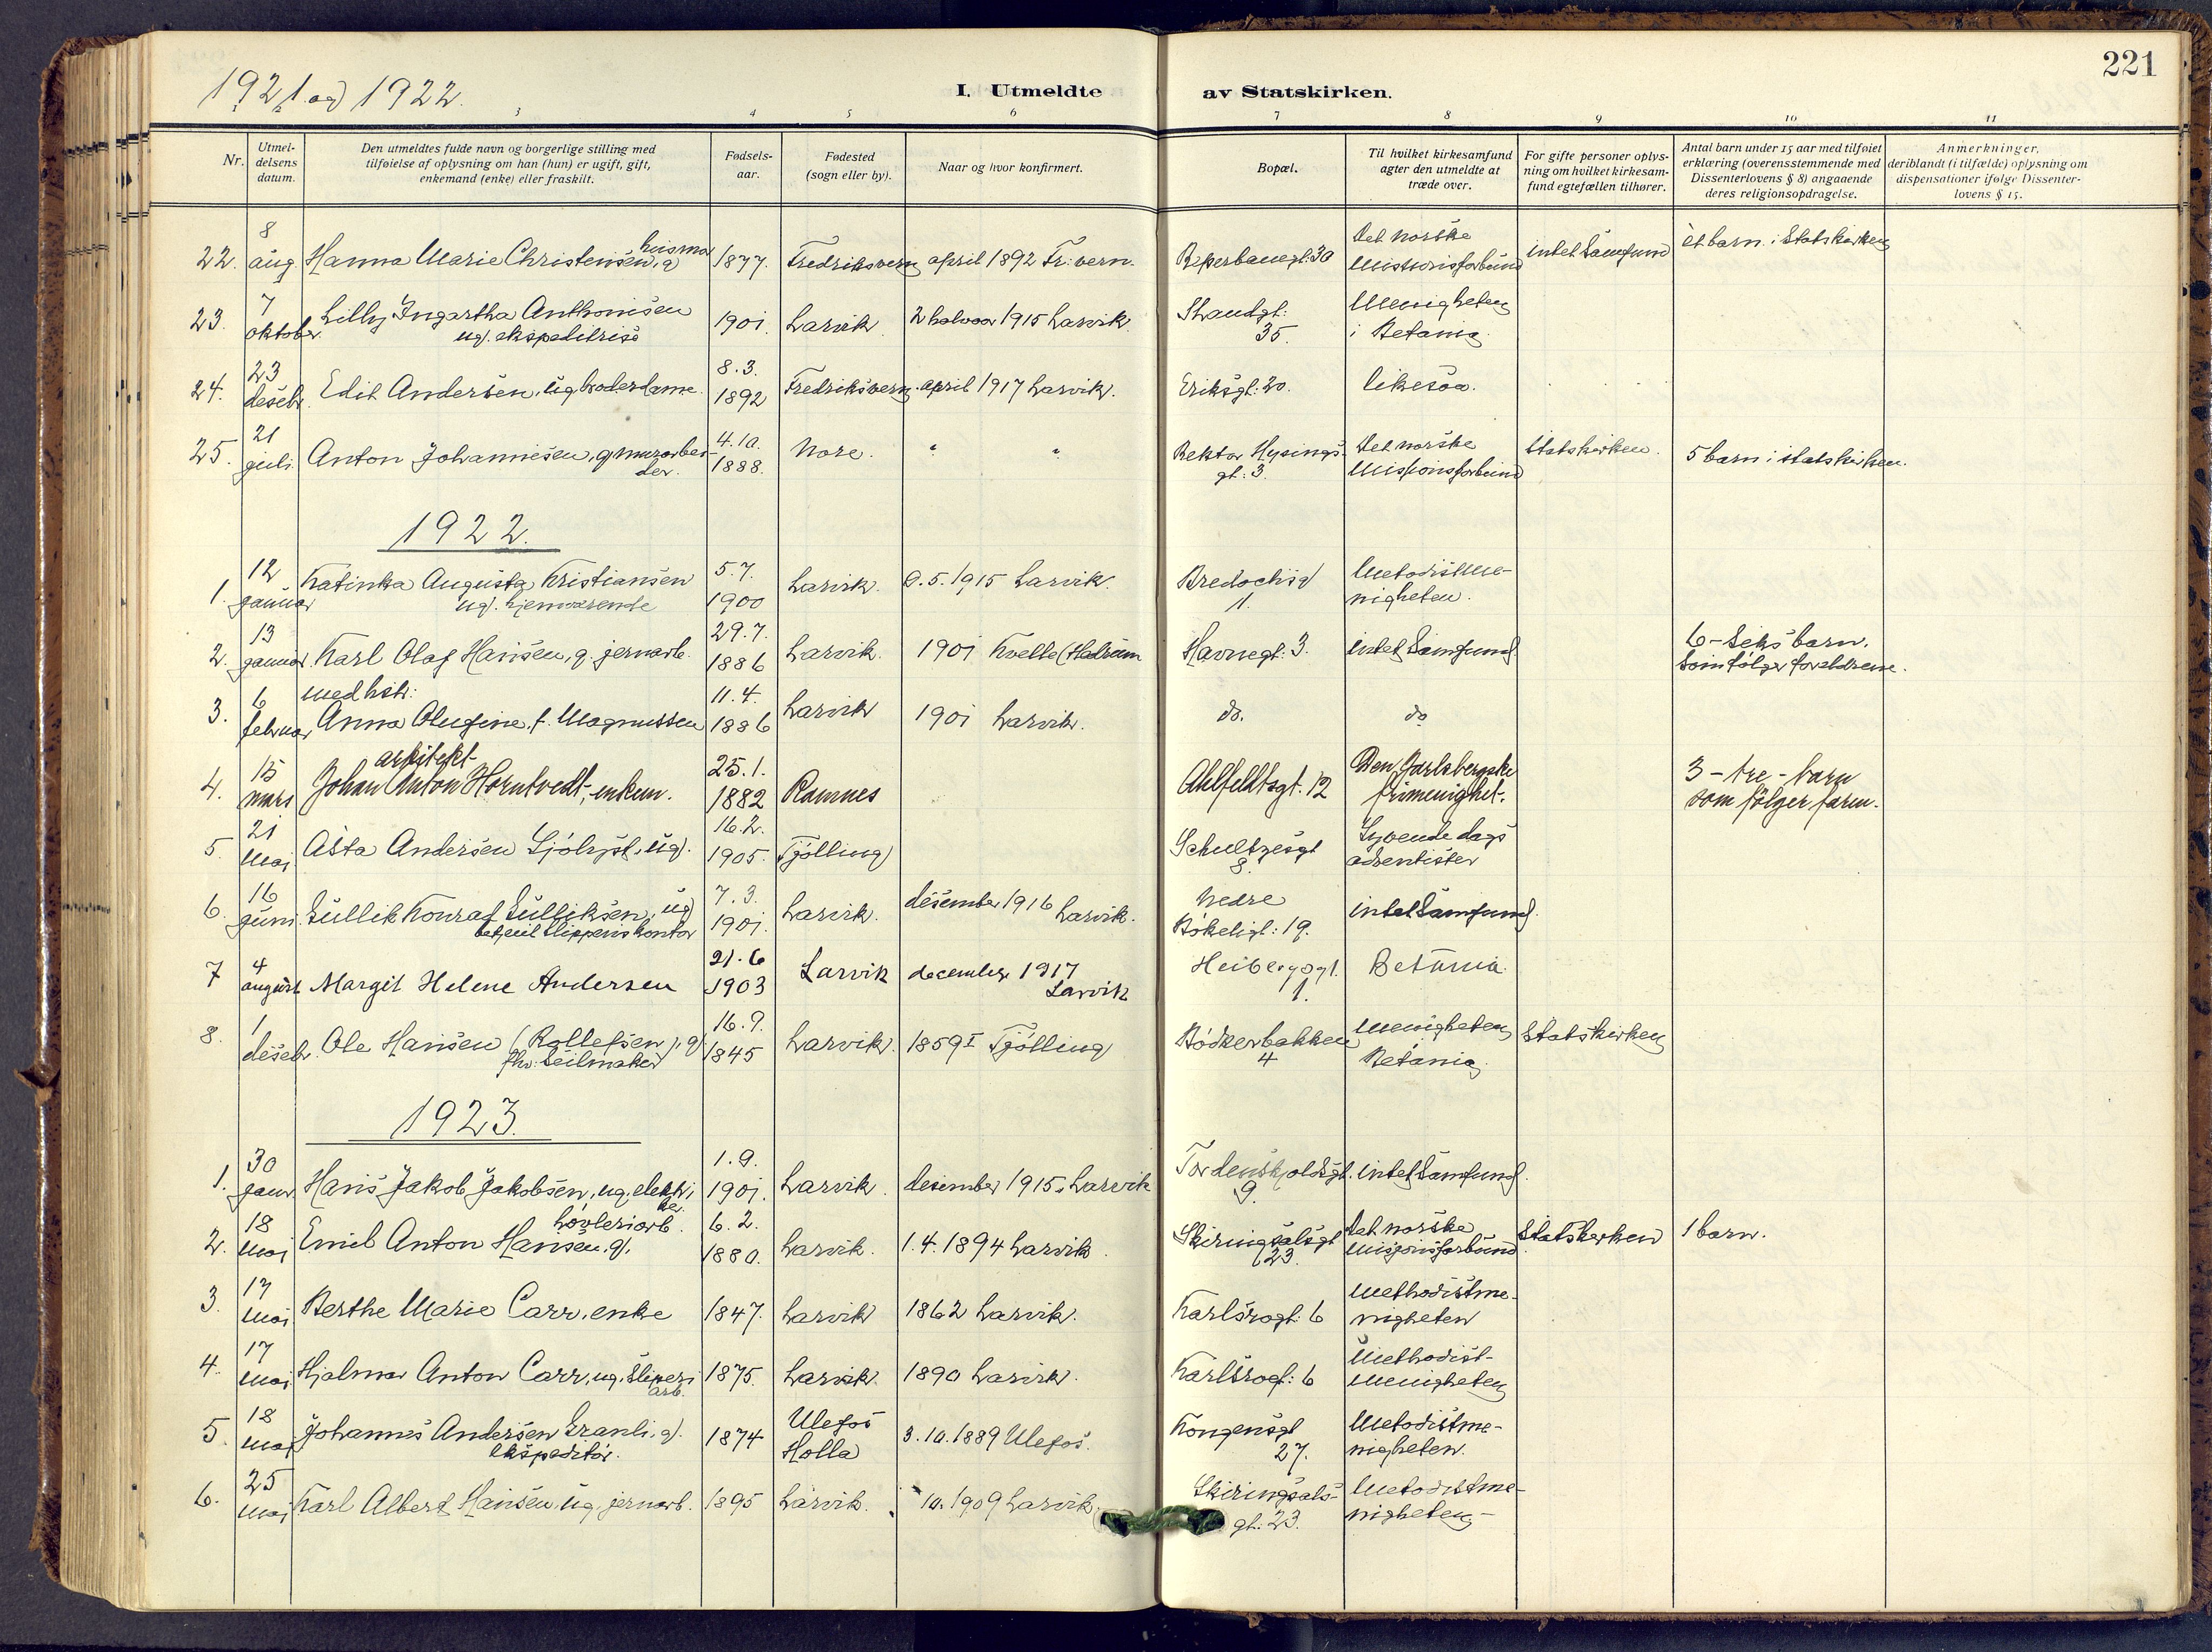 221
1921 og 1922.
I. Utmeldte av Statskirken.
3 4 5 6 7 8 9 10 11
Nr. Utmel-delsens datum. Den utmeldtes fulde navn og borgerlige stilling med tilføielse af oplysning om han (hun) er ugift, gift, enkemand (enke) eller fraskilt. Fødsels-aar. Fødested (sogn eller by). Naar og hvor konfirmert. Bopæl. Til hvilket kirkesamfund agter den utmeldte at træde over. For gifte personer oplys-ning om hvilket kirkesam-fund egtefællen tilhører. Antal barn under 15 aar med tilføiet erklæring (overensstemmende med Dissenterlovens § 8) angaaende deres religionsopdragelse. Anmerkninger, deriblandt (i tilfælde) oplysning om dispensationer ifølge Dissenter-lovens § 15.
22. 8 aug. Hanna Marie Christensen, g. husmor 1877. Fredriksvern april 1892 Fr:vern. Reperbanegt: 30 Det norske Missionsforbund intet Samfund et barn i Statskirken
23. 7 oktober. Lilly Ingartha Anthonisen ug. ekspeditrise 1901. Larvik. 2 halvaar 1915 Larvik. Strandgt: 35. Menigheten i Betania.
24. 23 desebr. Edit Andersen, ug. broderdame. 8.3. 1892 Fredriksvern. april 1917 Larvik. Eriksgt: 20. likesaa.
25. 21 juli. Anton Johannesen, g. murarbeider. 4.10. 1888. Nore. " " Rektor Hysings gt: 3. Det norske Missionsforbund Statskirken. 5 barn i statskirken.
1922.
1. 12 januar Katinka Augusta Kristiansen ug. hjemværende 5.7. 1900 Larvik. 9.5.1915 Larvik. 1. Metodistme-nigheten.
2. 13 januar Karl Olaf Hansen, g. jernarb. 29.7. 1886 Larvik. 1901 Kvelle (Hedrum Havnegt: 3. intet Samfund. 6 - seks barn. som følger foreldrene.
3. 6 februar med hstr: Anna Olufine, f. Magnussen 11.4. 1886 Larvik 1901 Larvik. do. do
4. 15 mars arkitekt Johan Anton Horntvedt, enkem. 25.1. 1882 Ramnes Ahlfeldtsgt. 12 Den Jarlsbergske frimenighet. 3 - tre - barn som følger faren.
5. 21 mai Asta Andersen Sjølyst, ug. 16.2. 1905. Tjølling Schultzesgt 8. Syvende dags adventister
6. 16 juni. Gullik Konrad Gulliksen, ug 7.3. 1901. Larvik. desember 1916 Larvik. Nedre Bøkeligt: 19. intet Samfund.
7 4 august Margit Helene Andersen 21.6 1903 Larvik december 1917 Larvik Heibergsgt. 1. Betania.
8. 1 desebr. Ole Hansen (Rollefsen), g. fhv: Seilmaker 16.9. 1845 Larvik. 1859 I Tjølling Bødkerbakken 4 Menigheten Betania Statskirken
1923.
1. 30 janr. Hans Jakob Jakobsen, ug. elektriker. 1.9. 1901. Larvik. desember 1915, Larvik Tordenskjoldsgt. 9. intet Samfund.
2. 18 mai Emil Anton Hansen, g. høvleriarb. 6.2. 1880. Larvik. 1.4.1894 Larvik. Skiringsalsgt 23. Det norske misjonsforbund Statskirken 1 barn.
3. 17 mai Berthe Marie Carr, enke 1847. Larvik 1862 Larvik. Karlsrogt: 6 Methodistme-nigheten
4. 17 mai Hjalmar Anton Carr, ug. sliperiarb. 1875. Larvik. 1890 Larvik. Karlsrogt: 6 Methodist-menigheten
5. 18 mai Johannes Andersen Granli, g. ekspeditør. 1874 Ulefos Holla 3.10.1889 Ulefos. Kongensgt 27. Metodistme-nigheten.
6. 25 mai Karl Albert Hansen, ug. jernarb. 1895 Larvik. 10.1909 Larvik. Skiringsals-gt: 23. Metodistme-nigheten